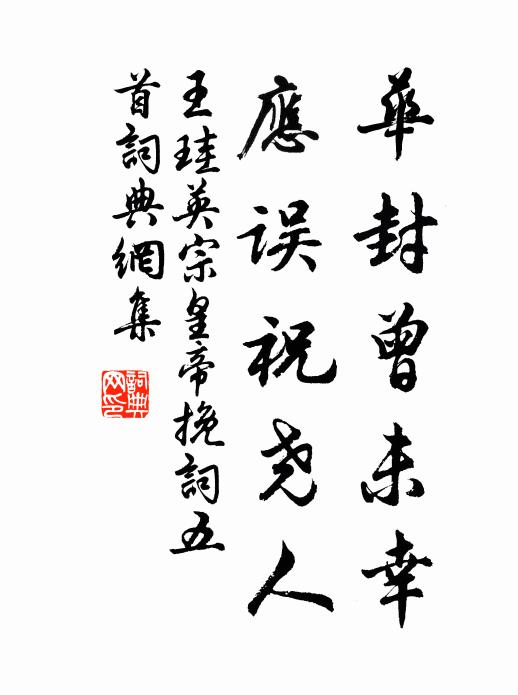 華封曾未幸
應误祝尧人
王珪英宗皇帝挽詞五
首詞典網集
詞典
网印